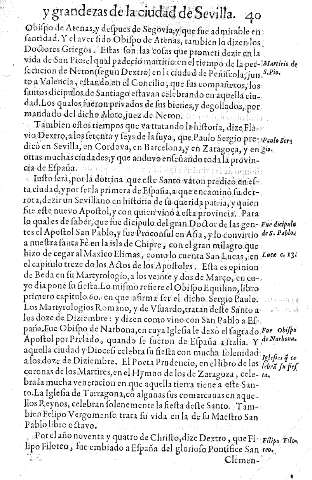 y grandezas de la ciudad de Sevilla. 40
Obispo de Atenas, y despues de Segovia, y que fue admirable en
santidad. Y el aver sido Obispo de Atenas, tambien lo dizen los
Doctores Griegos. Estas son las cosas que prometi dezir en la
vida de San Pio, el qual padeciò martirio en el tiempo de la per-
secucion de Neron (segun Dextro) en la ciudad de Peñiscola, jun-
to a Valencia, estando en el Concilio, que sus compañeros, los
santos dicipulos de Santiago estavan celebrando en aquella ciu-
dad. Los quales fueron privados de sus bienes, y degollados, por
mandado del dicho Aloto, juez de Neron.
Martirio de
S. Pio.
Tambien estos tiempos que va tratando la historia, dize Fla-
vio Dextro, a los setenta y seys de la suya, que Paulo Sergio pre-
dicò en Sevilla, en Cordova, en Barcelona, y en Zaragoça, y en
otras muchas ciudades; y que anduvo enseñando toda la provin-
cia de España.
Paulo Ser
gio.
Justo serà, por la dotrina que este Santo vàron predicò en es-
ta ciudad, y por ser la primera de España, a que encaminò su der-
rota, dezir un Sevillano en historia de su querida patria, y quien
fue este nuevo Apostol, y con quien vino a esta provincia. Para
lo qual es de saber, que fue dicipulo del gran Doctor de las gen-
tes el Apostol San Pablo, y fue Proconsul en Asia, y lo convirtio
a nuestra santa Fè en la isla de Chipre, con el gran milagro que
hizo de cegar al Maxico Elimas, como lo cuenta San Lucas, en
el capitulo treze de los Actos de los Apostoles. Esta es opinion
de Beda en su Martyrologio, a los veinte y dos de Março, en cu-
yo dia pone su fiesta. Lo mismo refiere el Obispo Equilino, libro
primero capitulo 60. en que afirma ser el dicho Sergio Paulo.
Los Martyrologios Romano, y de Vsuardo, tratan deste Santo a
los doze de Diziembre: y dizen como vino con San Pablo a Es-
paña. Fue Obispo de Narbona, en cuya Iglesia le dexò el sagrado
Apostol por Prelado, quando se fueron de España a Italia. Y
aquella ciudad y Diocesi celebra su fiesta con mucha solenidad
a los doze de Diziembre. El Poeta Prudencio, en el libro de las
coronas de los Martires, en el Hymno de los de Zaragoza, cele-
bra la mucha veneracion en que aquella tierra tiene a este San-
to. La Iglesia de Tarragona, cō algunas sus comarcanas en aque-
llos Reynos, celebran solenemente la fiesta deste Santo. Tam-
bien Felipo Vergomense trata su vida en la de su Maestro San
Pablo libro estavo.
Fue dicipulo
de S. Pablo.
Luce c. 13.
Fue Obispo
de Narbona.
Iglesias q ce
lebrā su fies
Por el año noventa y quatro de Christo, dize Dextro, que Fi-
lipo Filoteo, fue embiado a España del glorioso Pontifice San
Clemen-
Filipo Filo
teo.